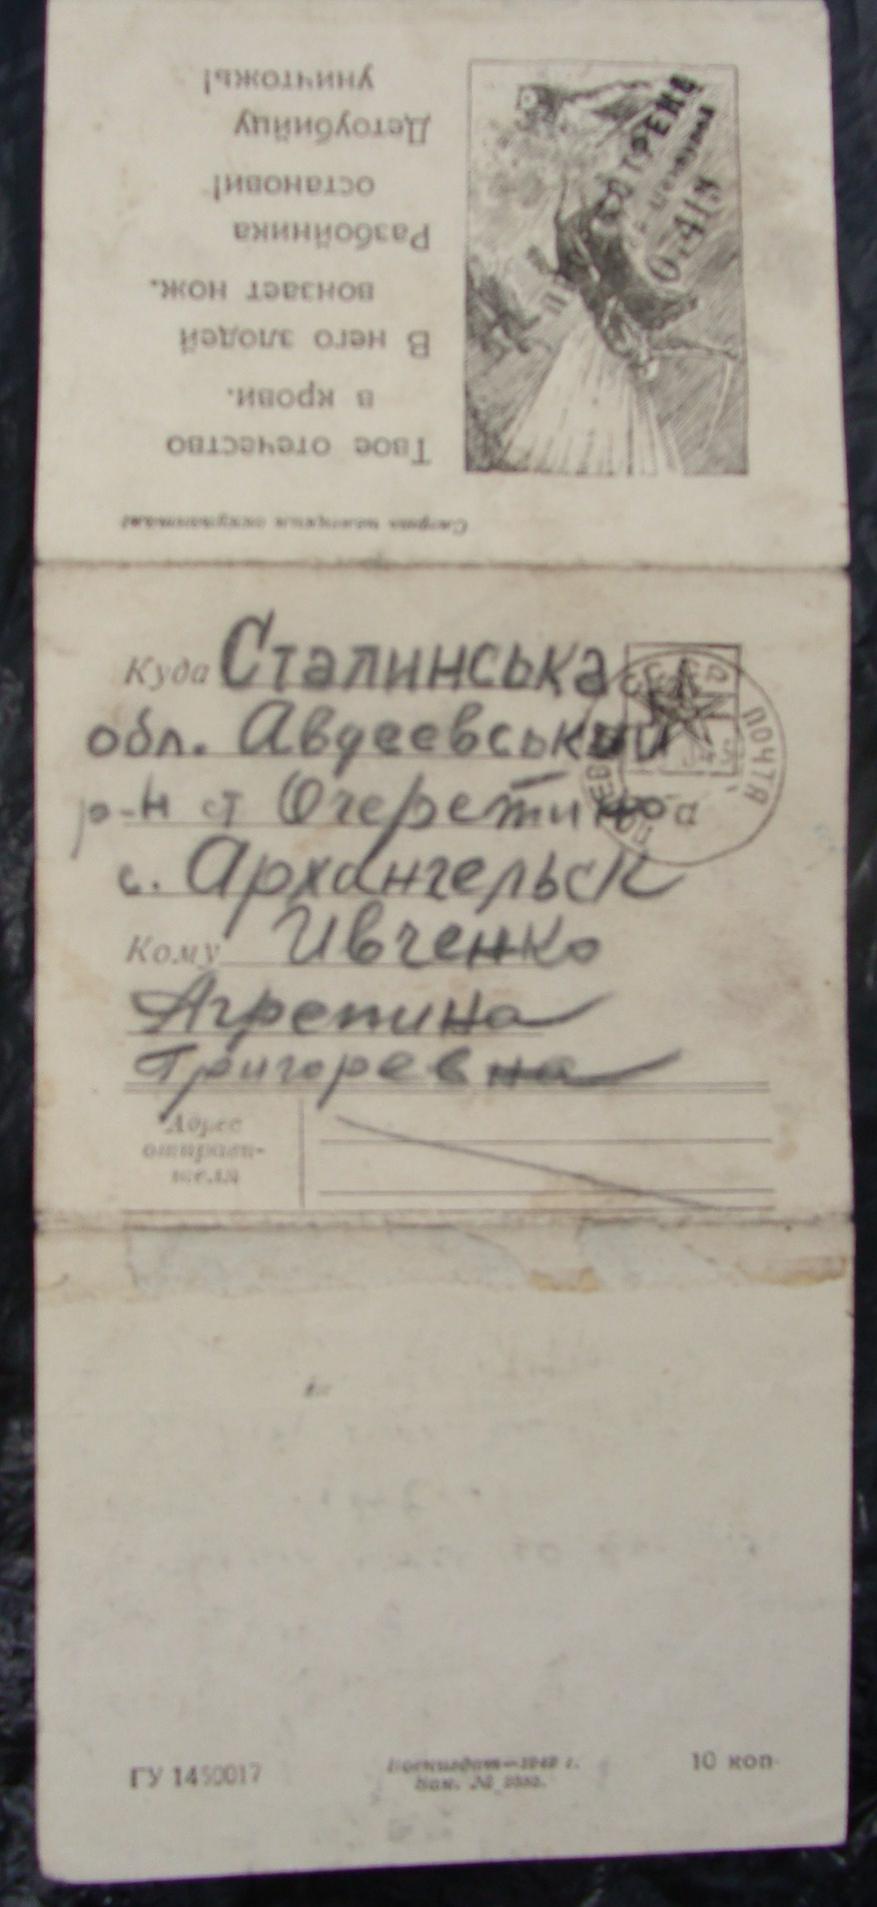 Смерть немецким оккупантам!
Твое отечество
в крови.
В него злодей
вонзает нож.
Разбойника
останови!
Детоубийцу
уничтожь!
ПРОСМОТРЕНО
07418
Куда Сталинська
обл. Авдеевський
р-н ст Очеретино
с. Архангельск
Кому Ивченко
Агрепина
Григоревна
ПОЧТА
Адрес
отправи-
теля
ГУ 1450017
Воениздат—1942 г.
Зак. №
10 коп